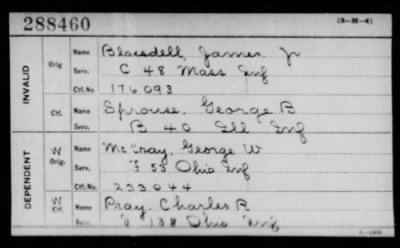 288460 (3-M-4)
INVALID Orig Name Blaisdell, James, Jr
Serv. C 48 Mass Inf
Ctf. No. 176093
Ctf. Name Sprouse, George B
Serv. B 40 Ill Inf
DEPENDENT W Orig. Name McCray, George W
Serv. F 55 Ohio Inf
Ctf. No. 233044
W Ctf. Name Pray, Charles R
Serv. 138 Ohio Inf